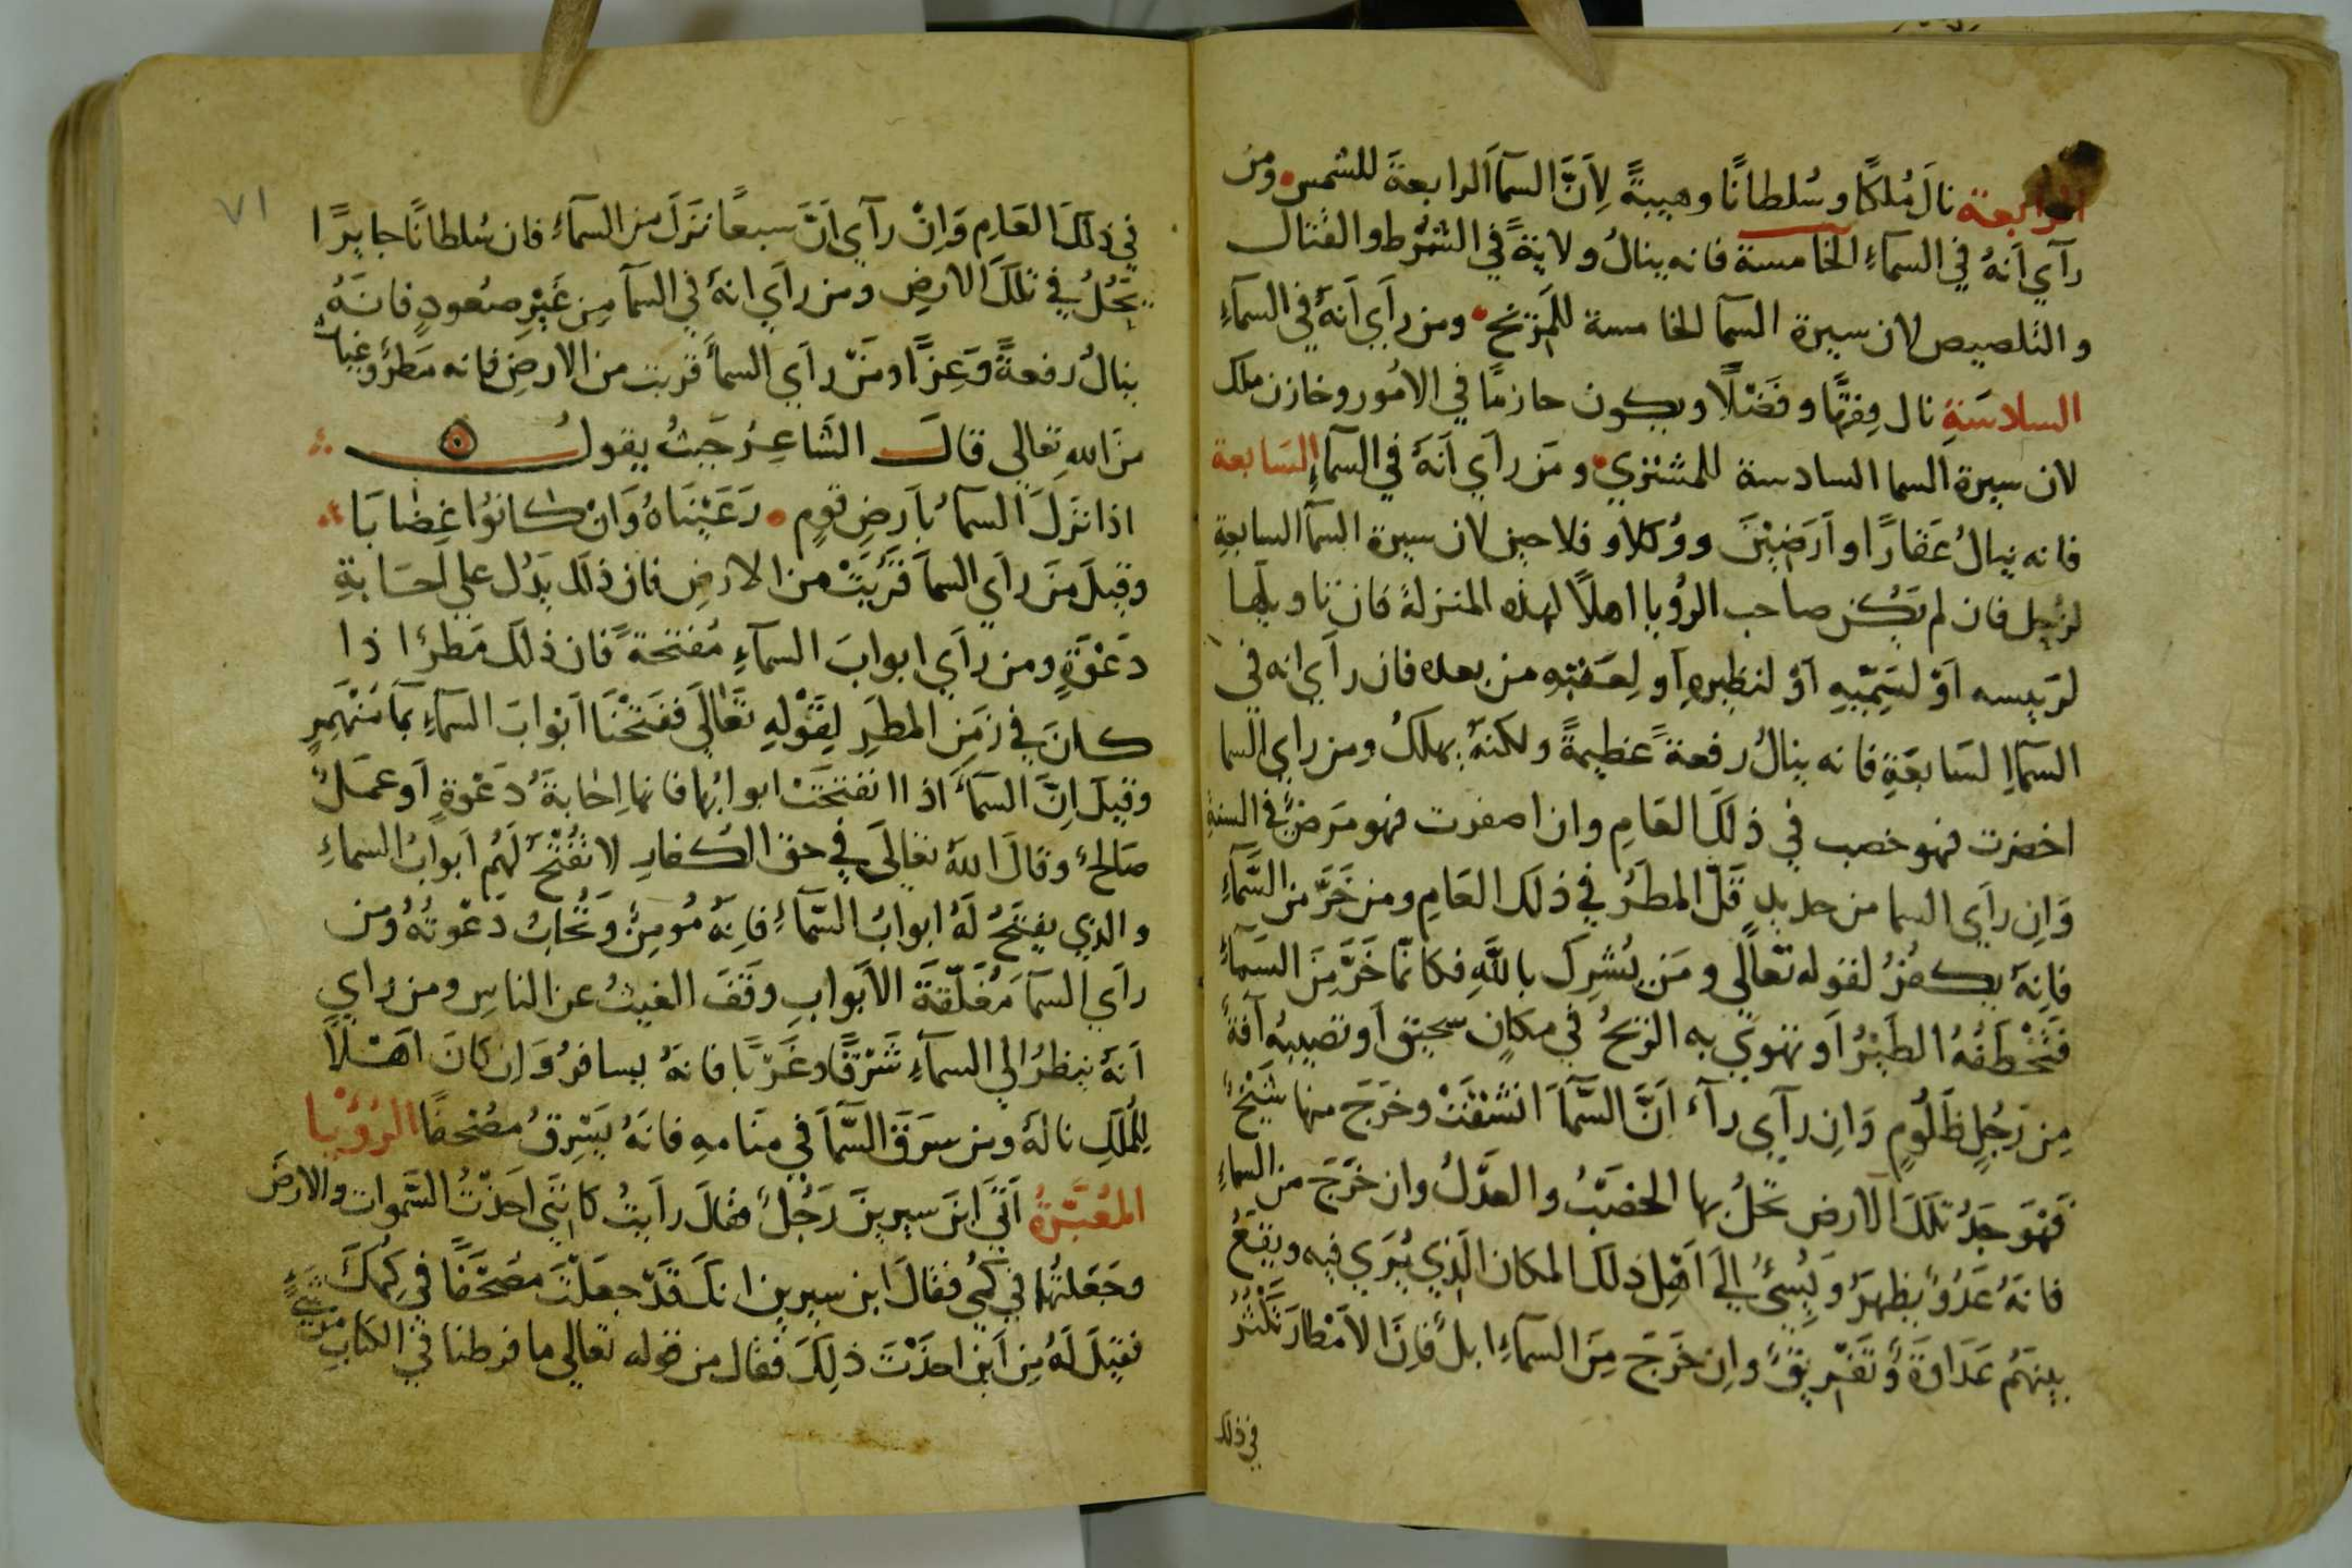 الرابعة نالَ مُلكًا وسُلطانًا وهيبةً لِأَنَّ السمآ الرابعةَ للشمس ومن
رآي اَنهُ في السماءِ الخامسة فانه ينالُ ولايةً في الشُرط والقتال
والتلصيص لان سيرة السما الخامسة للمريخ ومن رآي اَنهَّ في السماءِ
السادسَةِ نال فِقهًا وفَضْلًا ويكون حازمًا في الامُور وخازن ملك
لان سيرة السما السادسة للمشتري ومَن رآي اَنَهَّ في السماءِ السَابعة
فانه ينالُ عَقارًا واَرَضِيْنَ ووُكلاَ وفلاحين لان سيرة السمآ السابعةِ
لزحل فان لم يَكُن صاحب الرؤيا اهلًا لهذه المنزلة فان تاويلها
لرَييسه اَوْ لسَمِيّيهِ اَوْ لنظيرهِ اَو لِعَقبِهِ من بعده فان رآي انه في
السَمآِ السَابعَةِ فانه ينالُ رفعةً عَظيمةً ولكنهُ يهلكُ ومن رآي السما
اخضرت فهو خصب في ذلكَ العَامِ وان اصفرت فهو مَرضٌ في السنةِ
وَاِن رآيَ السما من حديدٍ قَلّ المطَرُ في ذلك العَامِ ومن خَرَّ من السَّماءِ
فاِنهَّ يكفرُ لقوله تعَالَي ومَن يُشرِك باللَّهِ فكانمّا خَرَّ مِنَ السَماءِ
فتَخْطَفُهُ الطَيْرُ اَو تهوي به الريحُ في مكانٍ سحيق اَو تصيبهِ آفةٌ
مِن رَجُلٍ ظَلُومٍ وَاِن رآي رآء اَنَّ السَّمآَ انشقتْ وخرَجَ منها شَيْخٌ
فَهْوَ جَدُ تلكَ الارض يحَلُ بها الخصَبُ والعَدْلُ وان خرَجَ من السماءِ
فانهَُ عَدوٌ يظهرُ وَيُسيُ اِليَ اَهْلِ ذلكَ المكان الذِي يُرَي فيه ويَقعُ
بينهَُم عَدَاوةٌ وتَفْرِيقٌ وان خَرجَ مِنَ السماءِ ابلٌ فاِنَ الاَمْطارَ تكْثرُ
في ذلك
في ذلكَ العَامِ وَاِنْ رآي اَنَّ سبعًا نزَلَ من السماءِ فان سُلطانًا جايرًا
يحُلُ في تلكَ الارضِ ومن رآي انهَُ في السمآ مِن غَيْرِ صعُودٍ فانهَُ
ينالُ رفعةً وَعِزًّا ومَنْ رآي السمآَ قربت من الارضِ فانه مَطرٌ وغياث
مِنَ اللهِ تعَالي قالَ الشَاعِرُ حَيثُ يقولُ
اذا نزَلَ السمآُ بارَضِ قومٍ رَعَيْنَاهُ وَانْ كانوُا غِضابَا
وقيلَ مَنْ رآي السمآَ قَرُبَتْ من الارضِ فان ذلك يَدُل علي اِجَابةِ
دَعْوَةٍ ومن رآي ابوابَ السمآءِ مُفتحةً فان ذلكَ مَطرٌ اذا
كانَ في زمَنِ المطَرِ لِقَوْلهِ تعَاليَ ففَتحْنَا ابْوابَ السَمآءِ بمآ مُنهَمِرٍ
وقيلَ اِنَّ السمآَ اذا انفتحَتْ ابوابُها فانها اِجابةُ دَعْوةٍ اَو عمَلٌ
صَالحٌ وقالَ اللهُ تعاليَ في حق الكفارِ لا تُفْتَّحُ لَهُم اَبوابُ السماءِ
والذي يفتحَُ لَهُ ابوابُ السَّماءِ فاِنهَُ مُومِنٌ وَتجُابُ دَعْوتهُُ ومن
رآي السمآَ مُغَلَّقةَ الاَبوابِ وقَفَ الغيثُ عن الناسِ ومن رآي
اَنهَُ ينظرُ الي السمآءِ شَرْقًا وغَرْبًا فانهَُ يسافرُ وَاِن كانَ اهْلًا
لِلمُلكِ نالهُ ومن سرَقَ السَّمآَ في منَامهِ فانهَُ يَسْرِقُ مصُحفًا الرُؤيَا
المُعَبَّرةُ اَتيَ ابنَ سيرينَ رَجُلٌ فقالَ رايتُ كانني اخَذْتُ السَّموات والارضَ
وجَعَلتُها في كُمّي فقالَ ابن سيرين انكَ قَدْ جعَلْتَ مصُحَفًا في كمُّكَ
فقيلَ لَهُ مِن اَين اخذْتَ ذلِكَ فقال من قوله تعالي ما فرطنا في الكتابِ مِن شيءٍ
٧١